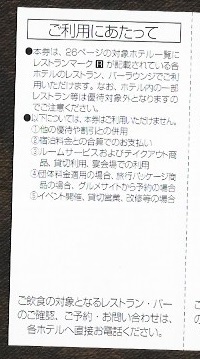 ご利用にあたって
●本券は、26ページの対象ホテル一覧に
レストランマーク R が記載されている各
ホテルのレストラン、バーラウンジでご利
用いただけます。なお、ホテル内の一部
レストラン等は優待対象外となりますの
でご注意ください。
●以下については、本券はご利用いただけません。
①他の優待や割引との併用
②宿泊料金との合算でのお支払い
③ルームサービスおよびテイクアウト商
品、貸切利用、宴会場での利用
④団体料金適用の場合、旅行パッケージ商
品の場合、グルメサイトから予約の場合
⑤イベント開催、貸切営業、改修等の場合
ご飲食の対象となるレストラン・バー
のご確認、ご予約・お問い合わせは、
各ホテルへ直接お電話ください。